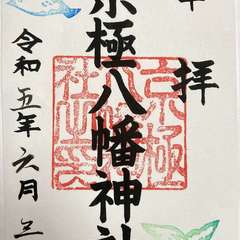 奉拝
京極八幡神社
京極八幡神社之印
令和五年六月三